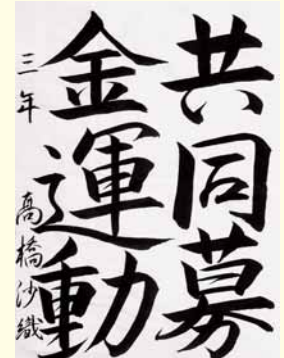 共同募
金運動
三年 高橋沙織